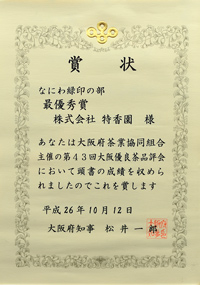 賞状
なにわ緑印の部
最優秀賞
株式会社 特香園 様
あなたは大阪府茶業協同組合
主催の第43回大阪優良茶品評会
において頭書の成績を収めら
れましたのでこれを賞します
平成26年10月12日
大阪府知事 松井一郎